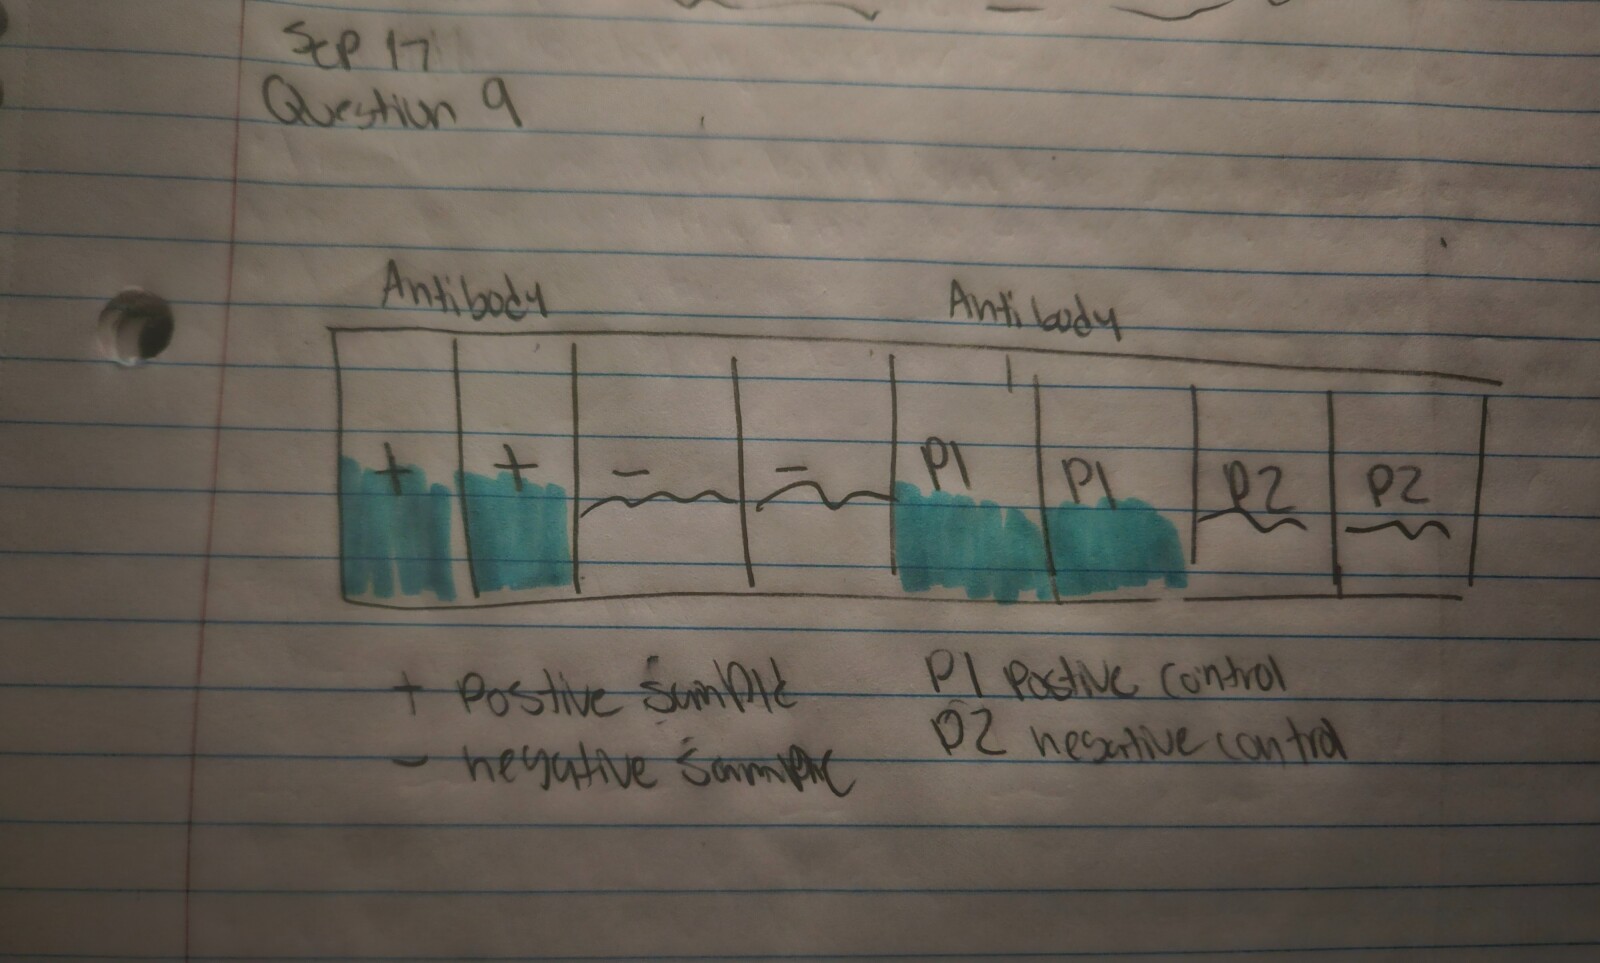 Sep 17
Question 9
Antibody Antibody
+ + - - P1 P1 P2 P2
+ Postive sample P1 Postive control
- negative sample P2 negative control